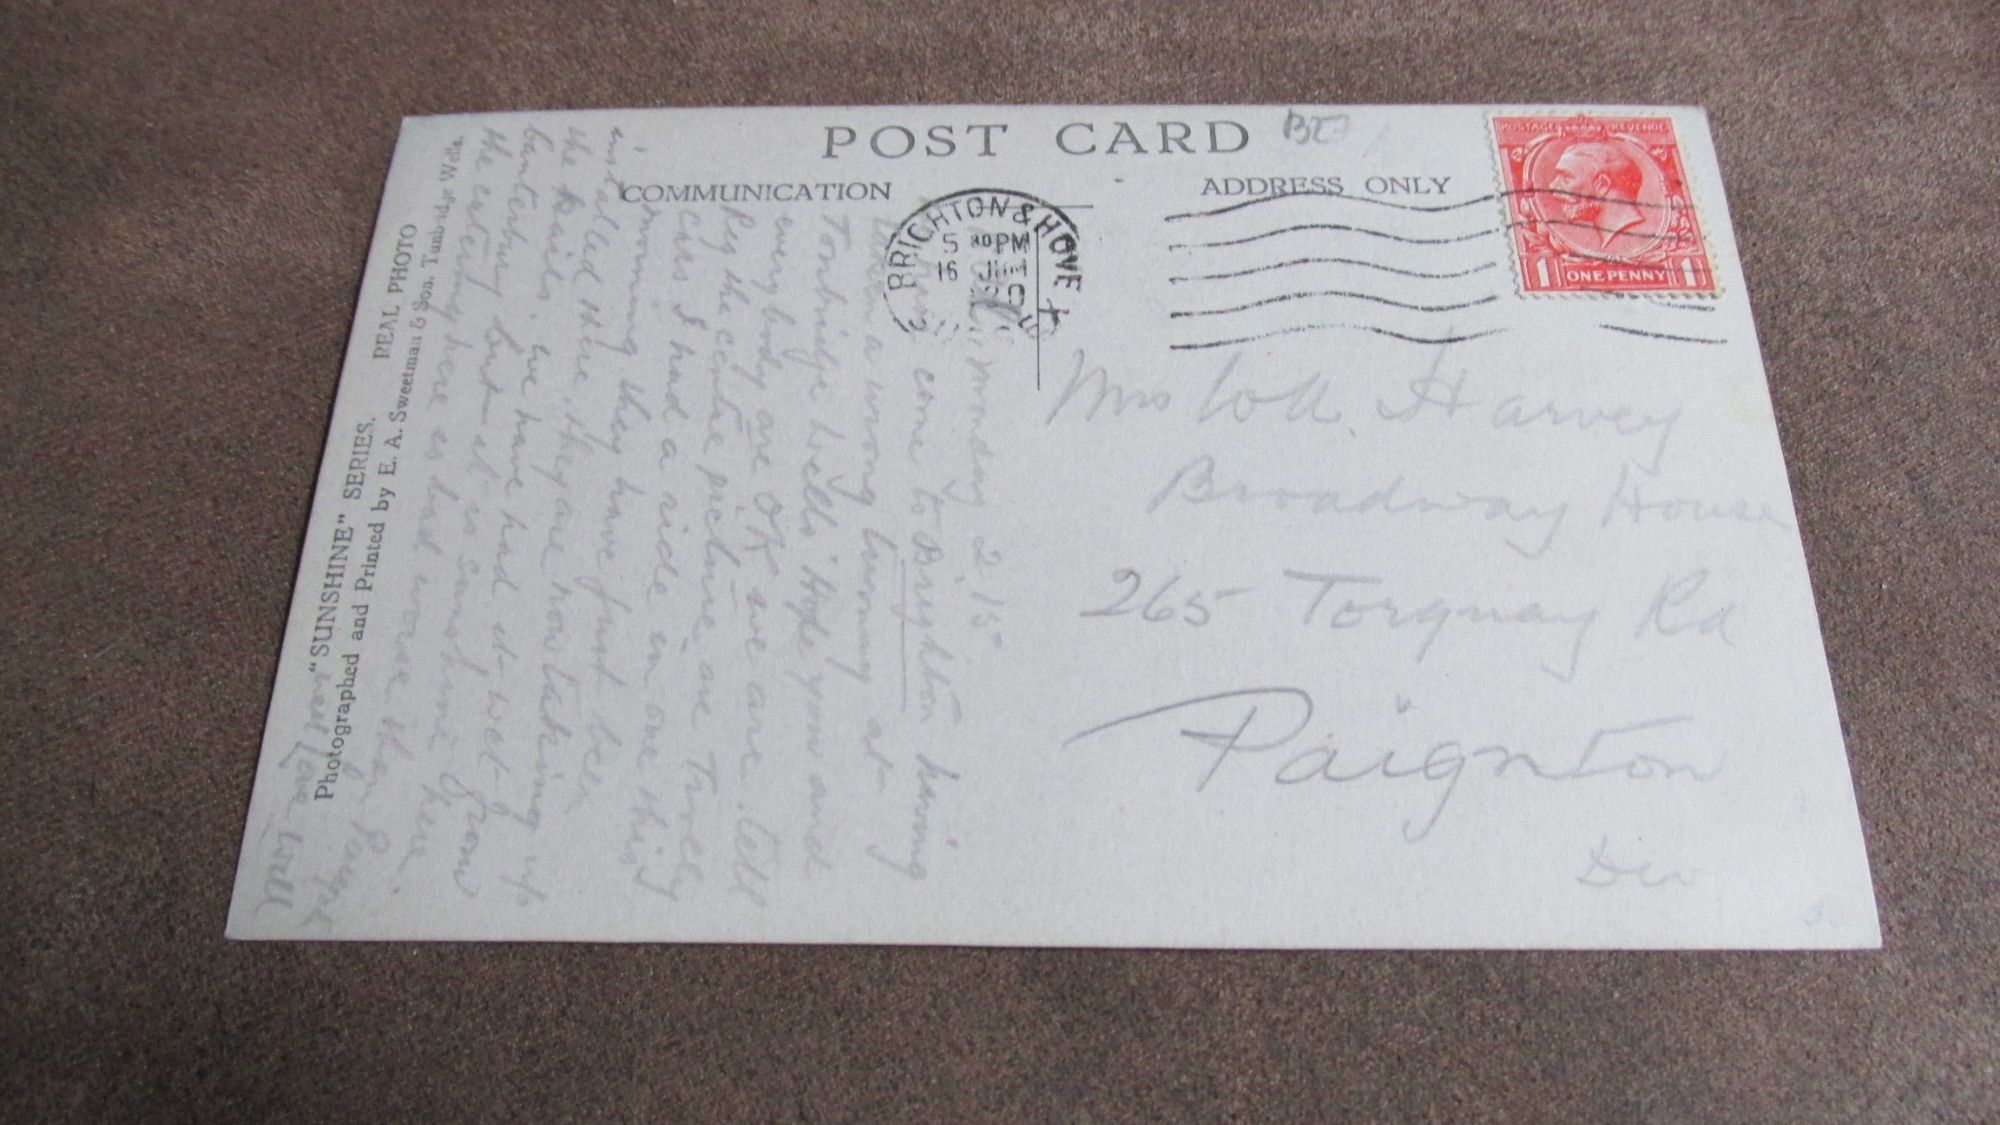 POST CARD
COMMUNICATION
ADDRESS ONLY
BRIGHTON & HOVE
5 30 PM
16
POSTAGE REVENUE
1 ONE PENNY 1
Mrs Harvey
Broadway House
265 Torquay Rd
Paignton
Dev
Monday 2.15
come to Brighton having
taken a wrong turning at
Tonbridge Wells. Hope you and
everybody are OK we are. Tell
Ry the centre picture are Trolley
cars I had a ride in one this
morning they have just been
installed here, they are now taking up
the Rails. we have had it wet from
Canterbury but it is sunshine here.
the catering here is bad worse than
Love Will
REAL PHOTO
"SUNSHINE" SERIES.
Photographed and Printed by E. A. Sweetman & Son. Tunbridge Wells.